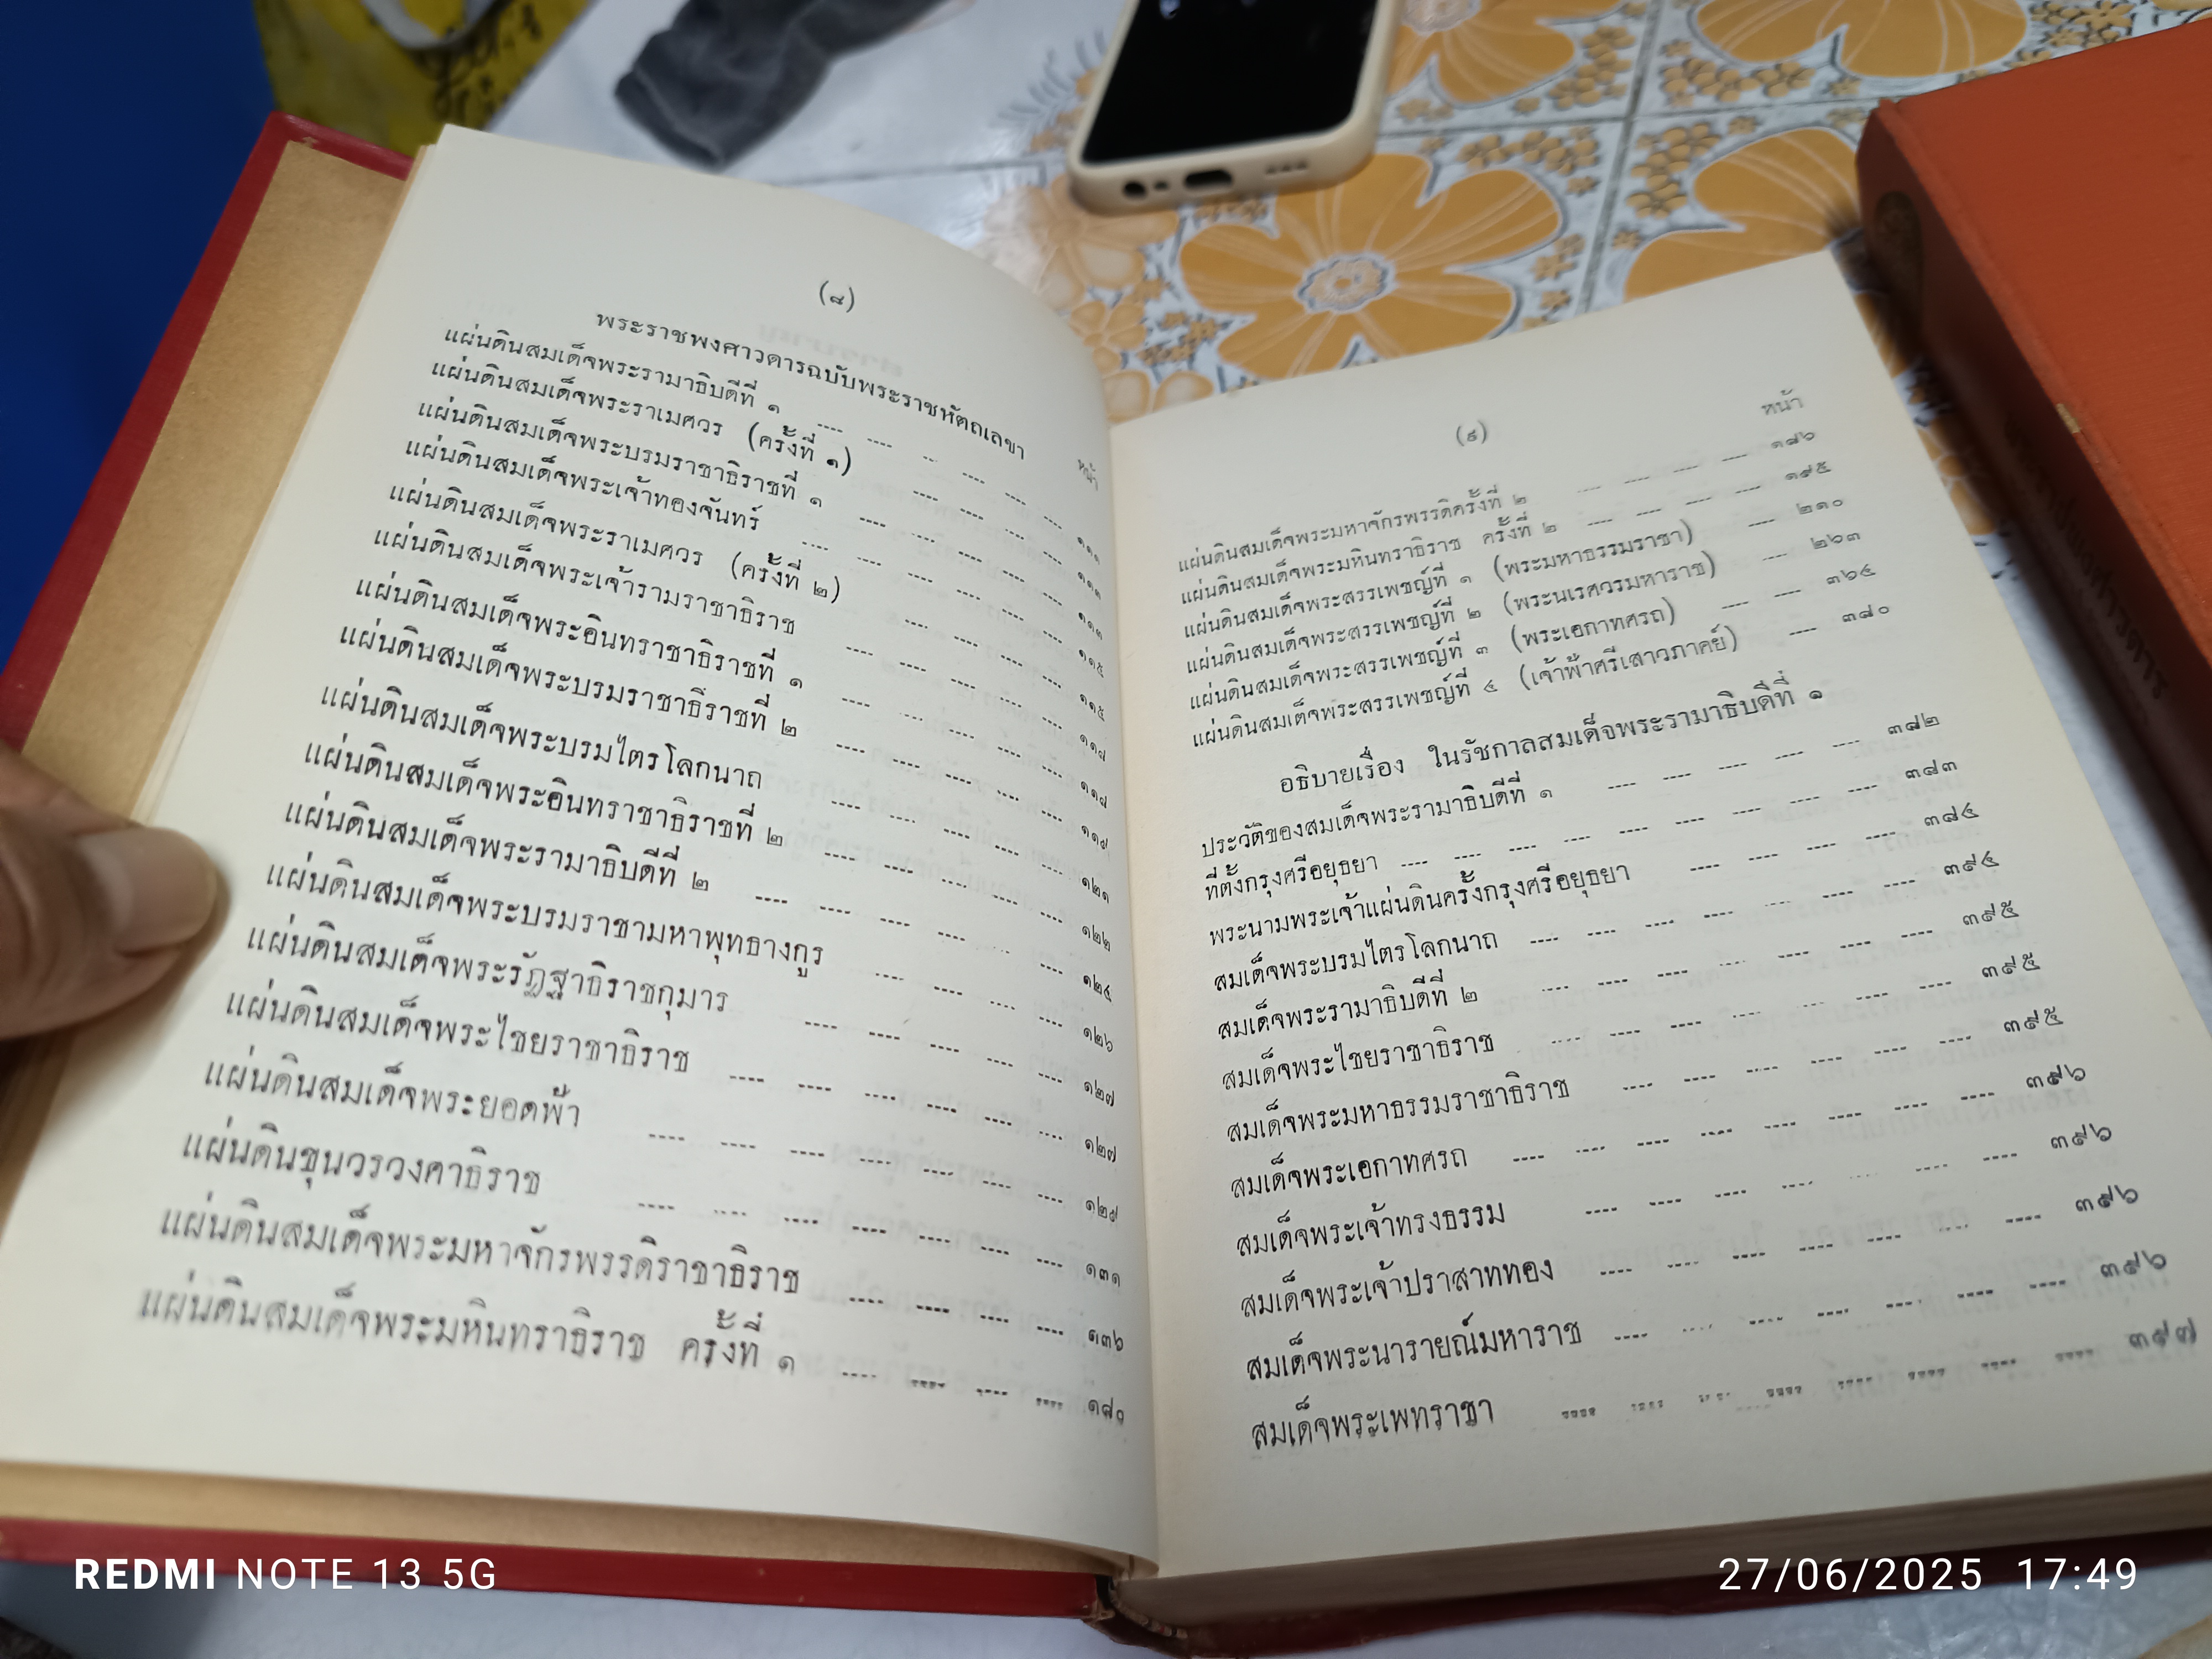 (๘)
พระราชพงศาวดารฉบับพระราชหัตถเลขา
หน้า
แผ่นดินสมเด็จพระรามาธิบดีที่ ๑ .... .... .... .... .... ๑๑๑
แผ่นดินสมเด็จพระราเมศวร (ครั้งที่ ๑) .... .... .... ๑๑๓
แผ่นดินสมเด็จพระบรมราชาธิราชที่ ๑ .... .... .... .... ๑๑๓
แผ่นดินสมเด็จพระเจ้าทองจันทร์ .... .... .... .... .... ๑๑๕
แผ่นดินสมเด็จพระราเมศวร (ครั้งที่ ๒) .... .... .... ๑๑๕
แผ่นดินสมเด็จพระเจ้ารามราชาธิราช .... .... .... .... ๑๑๗
แผ่นดินสมเด็จพระอินทราชาธิราชที่ ๑ .... .... .... .... ๑๑๘
แผ่นดินสมเด็จพระบรมราชาธิราชที่ ๒ .... .... .... .... ๑๑๙
แผ่นดินสมเด็จพระบรมไตรโลกนาถ .... .... .... .... ๑๒๑
แผ่นดินสมเด็จพระอินทราชาธิราชที่ ๒ .... .... .... .... ๑๒๒
แผ่นดินสมเด็จพระรามาธิบดีที่ ๒ .... .... .... .... .... ๑๒๔
แผ่นดินสมเด็จพระบรมราชามหาพุทธางกูร .... .... .... .... ๑๒๖
แผ่นดินสมเด็จพระรัฏฐาธิราชกุมาร .... .... .... .... .... ๑๒๗
แผ่นดินสมเด็จพระไชยราชาธิราช .... .... .... .... .... .... ๑๒๗
แผ่นดินสมเด็จพระยอดฟ้า .... .... .... .... .... .... .... ๑๒๙
แผ่นดินขุนวรวงศาธิราช .... .... .... .... .... .... .... ๑๓๑
แผ่นดินสมเด็จพระมหาจักรพรรดิราชาธิราช .... .... .... .... ๑๓๖
แผ่นดินสมเด็จพระมหินทราธิราช ครั้งที่ ๑ .... .... .... .... ๑๘๐
(๙)
หน้า
แผ่นดินสมเด็จพระมหาจักรพรรดิครั้งที่ ๒ .... .... .... .... ๑๘๖
แผ่นดินสมเด็จพระมหินทราธิราช ครั้งที่ ๒ .... .... .... .... ๑๙๕
แผ่นดินสมเด็จพระสรรเพชญ์ที่ ๑ (พระมหาธรรมราชา) .... ๒๑๐
แผ่นดินสมเด็จพระสรรเพชญ์ที่ ๒ (พระนเรศวรมหาราช) .... ๒๖๓
แผ่นดินสมเด็จพระสรรเพชญ์ที่ ๓ (พระเอกาทศรถ) .... .... ๓๖๔
แผ่นดินสมเด็จพระสรรเพชญ์ที่ ๔ (เจ้าฟ้าศรีเสาวภาคย์) .... ๓๘๐
อธิบายเรื่อง ในรัชกาลสมเด็จพระรามาธิบดีที่ ๑
ประวัติของสมเด็จพระรามาธิบดีที่ ๑ .... .... .... .... .... ๓๘๒
ที่ตั้งกรุงศรีอยุธยา .... .... .... .... .... .... .... .... .... ๓๘๓
พระนามพระเจ้าแผ่นดินครั้งกรุงศรีอยุธยา .... .... .... .... ๓๘๔
สมเด็จพระบรมไตรโลกนาถ .... .... .... .... .... .... .... ๓๙๔
สมเด็จพระรามาธิบดีที่ ๒ .... .... .... .... .... .... .... ๓๙๕
สมเด็จพระไชยราชาธิราช .... .... .... .... .... .... .... .... ๓๙๕
สมเด็จพระมหาธรรมราชาธิราช .... .... .... .... .... .... ๓๙๕
สมเด็จพระเอกาทศรถ .... .... .... .... .... .... .... .... ๓๙๖
สมเด็จพระเจ้าทรงธรรม .... .... .... .... .... .... .... ๓๙๖
สมเด็จพระเจ้าปราสาททอง .... .... .... .... .... .... .... ๓๙๖
สมเด็จพระนารายณ์มหาราช .... .... .... .... .... .... .... ๓๙๖
สมเด็จพระเพทราชา .... .... .... .... .... .... .... .... ๓๙๗
REDMI NOTE 13 5G
27/06/2025 17:49